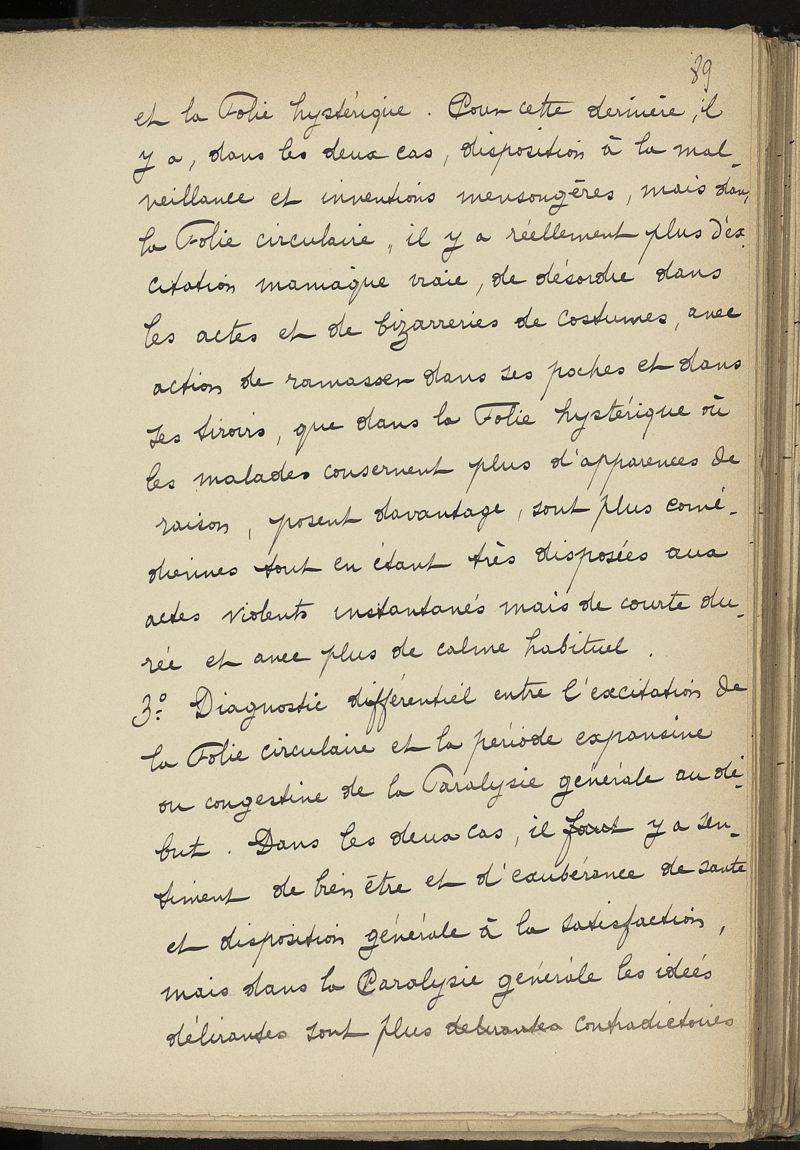 89
et la Folie hystérique. Pour cette dernière, il
y a, dans les deux cas, disposition à la mal-
veillance et inventions mensongères, mais dans
la Folie circulaire, il y a réellement plus d'ex-
citation maniaque vraie, de désordre dans
les actes et de bizarreries de costumes, avec
action de ramasser dans ses poches et dans
ses tiroirs, que dans la Folie hystérique où
les malades conservent plus d'apparences de
raison, posent davantage, sont plus comé-
diennes tout en étant très disposées aux
actes violents instantanés mais de courte du-
rée et avec plus de calme habituel.
3º Diagnostic différentiel entre l'excitation de
la Folie circulaire et la période expansive
ou congestive de la Paralysie générale au dé-
but. Dans les deux cas, il faut y a sen-
timent de bien être et d'exubérance de santé
et disposition générale à la satisfaction,
mais dans la Paralysie générale les idées
délirantes sont plus délirantes contradictoires